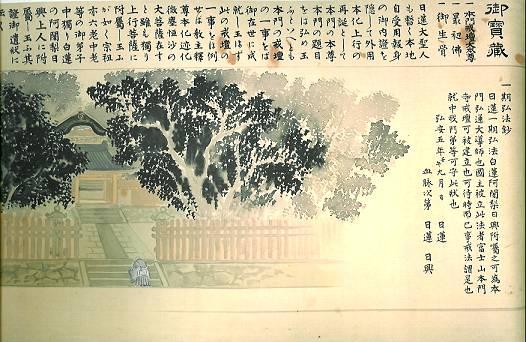 御寶藏
本門戒壇大本尊
一累祖佛
一御生骨
日蓮大聖人
も暫く本地
自受用報身
の御内證を
隠して外用
本化上行の
再誕として
本門の本尊
本門の題目
をは弘め玉
ふといへとも
本門の戒壇
の一事をは
御在世に成
就し玉はす
此の戒壇の
一事をは例
せは教主釋
尊本化迹化
微塵恒沙の
大菩薩在す
と雖も獨り
上行菩薩に
附屬し玉ふ
が如く宗祖
亦六老中老
等の御弟子
中獨り白蓮
の阿闍梨日
興上人に附
屬し玉ふ其
證御遺状に
一期弘法鈔
日蓮一期弘法白蓮阿闍梨日興附屬之可為本
門弘通大導師也國主被立此法者富士山本門
寺戒壇可被建立也可待時而已事戒法謂是也
就中我門弟等可守此状也
弘安五年壬午九月 日 日蓮
血脈次第 日蓮 日興